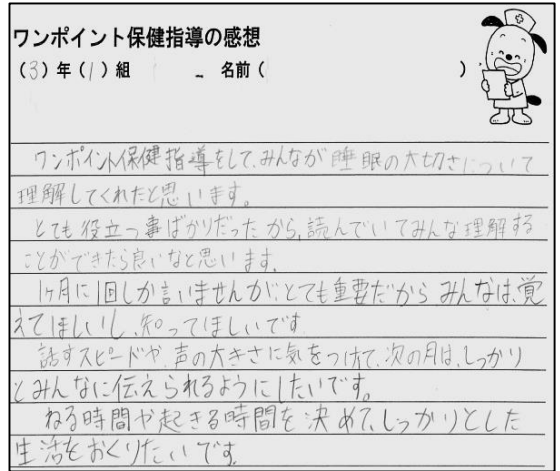 ワンポイント保健指導の感想
(3)年(1)組 名前( )
ワンポイント保健指導をして、みんなが睡眠の大切さについて
理解してくれたと思います。
とても役立つ事ばかりだったから、読んでいてみんな理解する
ことができたら良いなと思います。
1ヶ月に1回しか言いませんが、とても重要だからみんなは、覚
えてほしいし、知ってほしいです。
話すスピードや、声の大きさに気をつけて、次の月は、しっかり
とみんなに伝えられるようにしたいです。
ねる時間や起きる時間を決めて、しっかりとした
生活をおくりたいです。